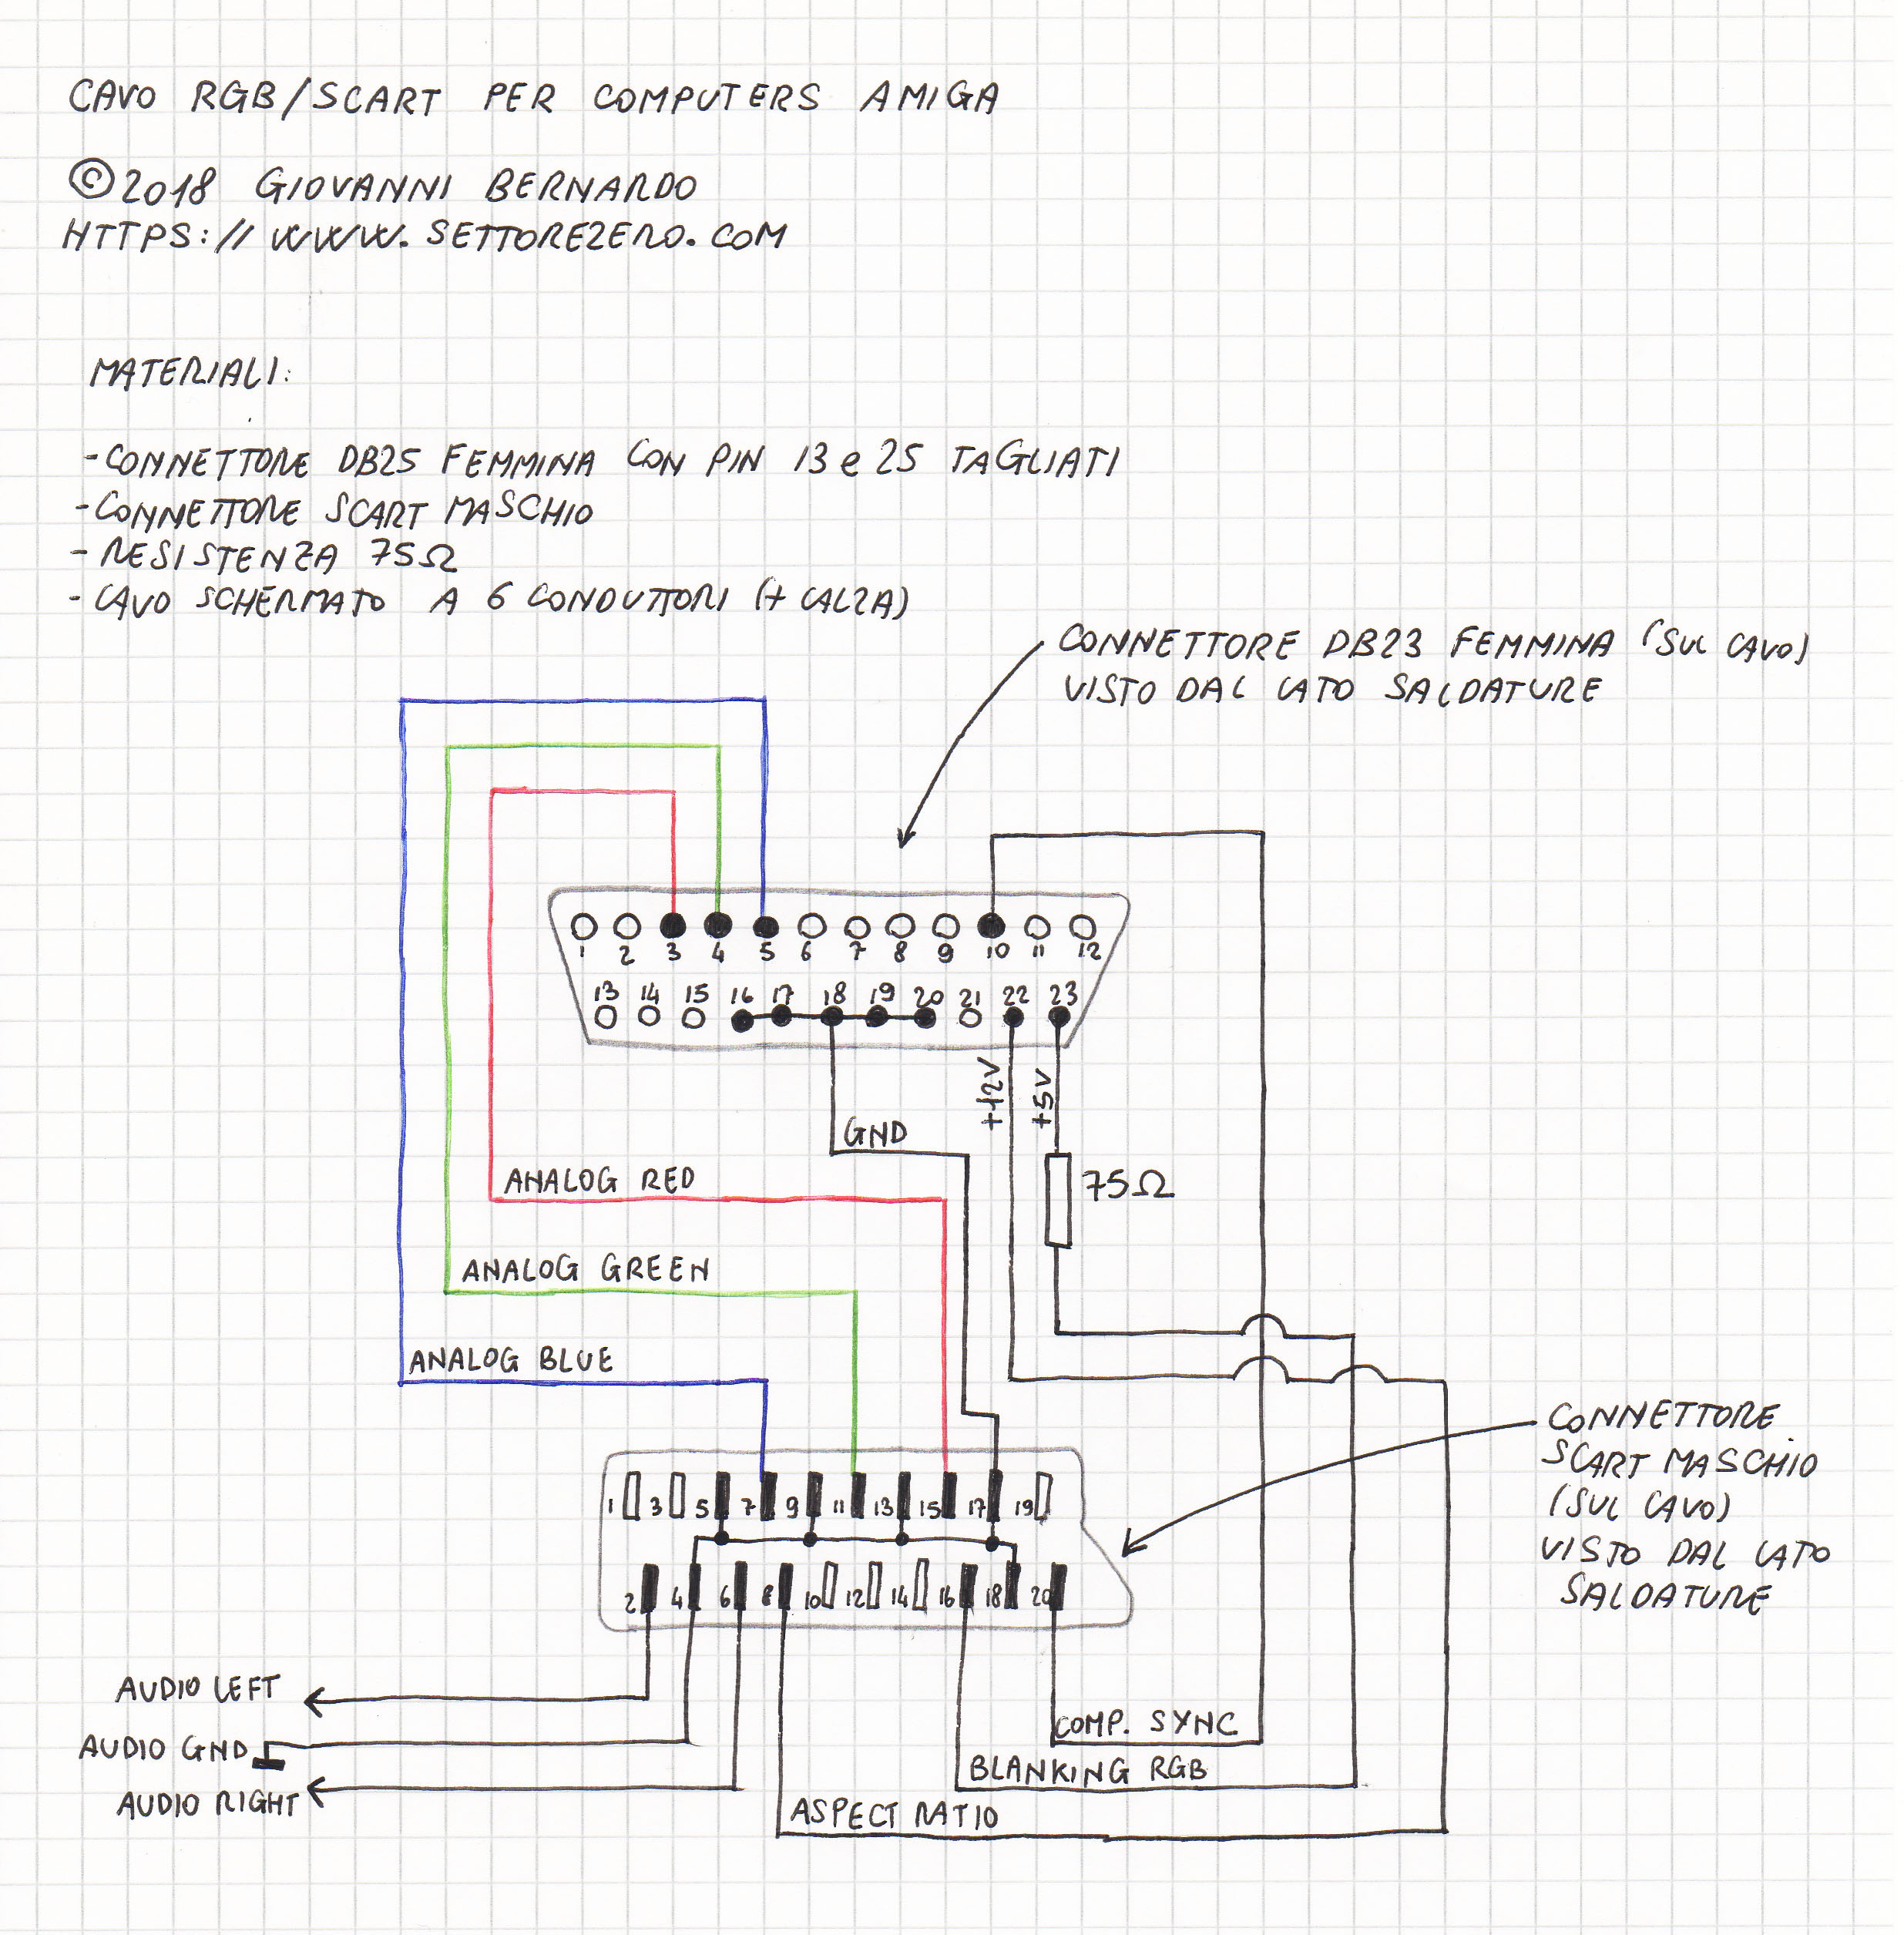 CAVO RGB/SCART PER COMPUTERS AMIGA
©2018 GIOVANNI BERNARDO
HTTPS://WWW.SETTOREZERO.COM
MATERIALI:
-CONNETTORE DB25 FEMMINA CON PIN 13 e 25 TAGLIATI
-CONNETTORE SCART MASCHIO
- RESISTENZA 75Ω
- CAVO SCHERMATO A 6 CONDUTTORI (+ CALZA)
CONNETTORE DB23 FEMMINA (SUL CAVO)
VISTO DAL LATO SALDATURE
1 2 3 4 5 6 7 8 9 10 11 12
13 14 15 16 17 18 19 20 21 22 23
+12V
+5V
GND
75Ω
ANALOG RED
ANALOG GREEN
ANALOG BLUE
CONNETTORE
SCART MASCHIO
(SUL CAVO)
VISTO DAL LATO
SALDATURE
1 3 5 7 9 11 13 15 17 19
2 4 6 8 10 12 14 16 18 20
AUDIO LEFT
COMP. SYNC
AUDIO GND
BLANKING RGB
AUDIO RIGHT
ASPECT RATIO